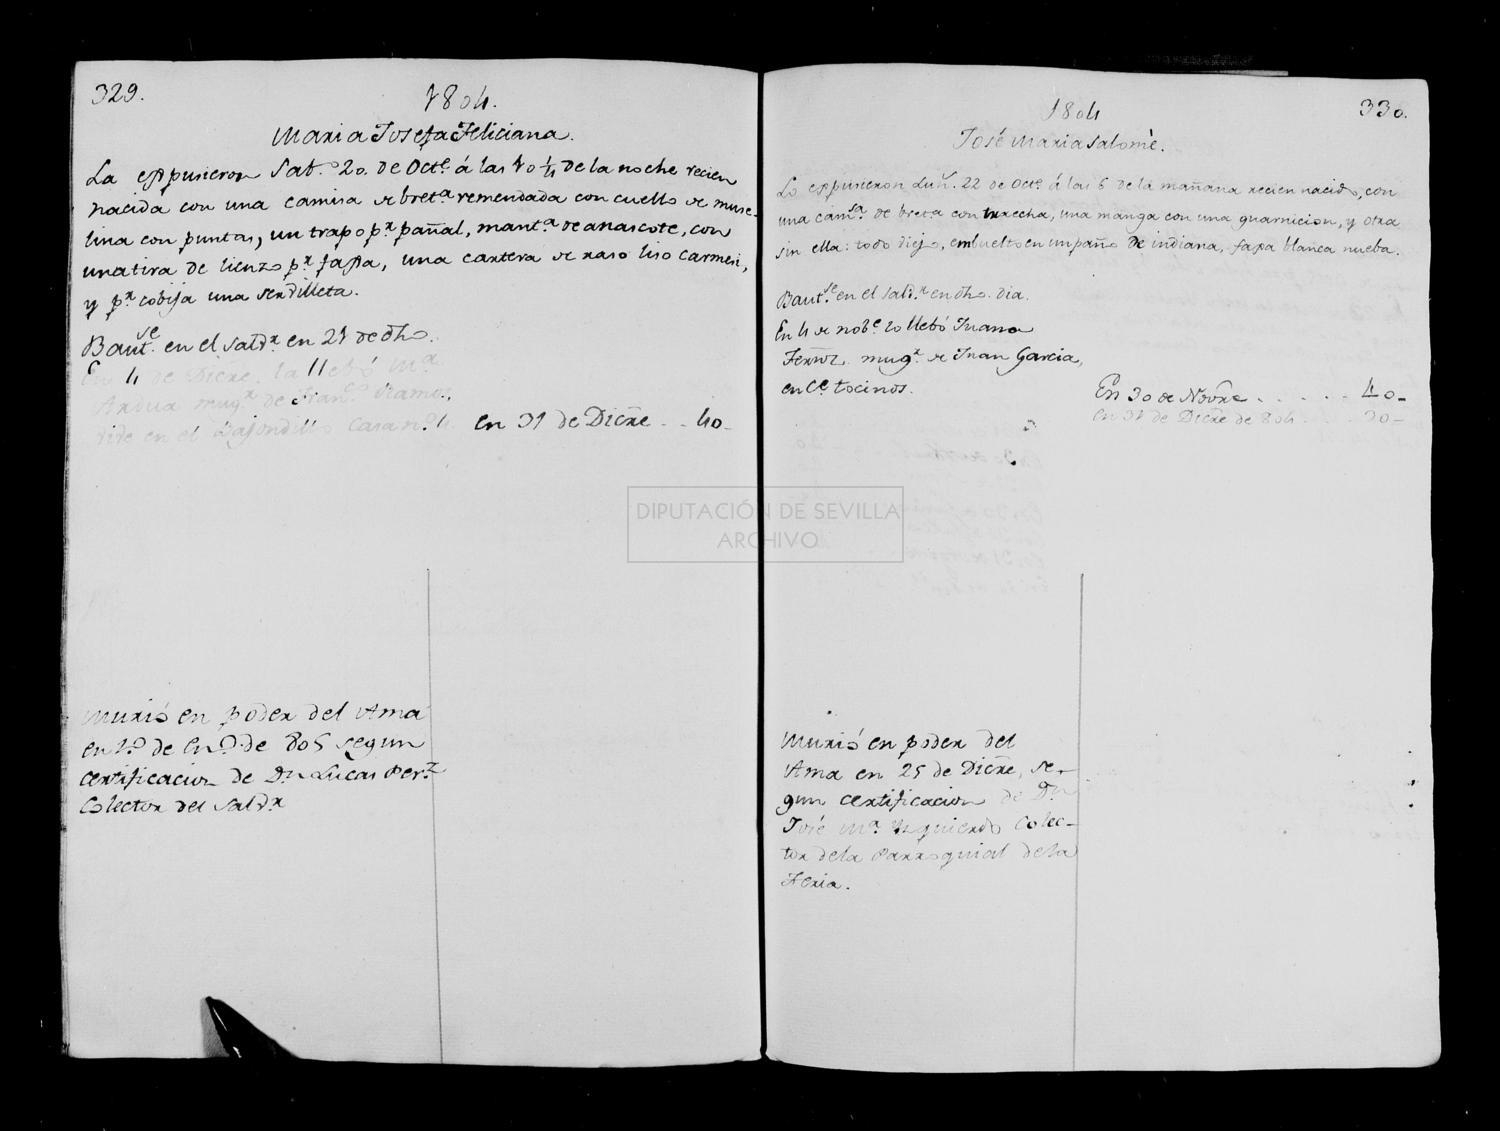 329.
1804.
Maria Josefa Feliciana.
La expusieron Sab.º 20. de Octe. á las 10 1/4 de la noche recien
nacida con una camisa de bret.ª remendada con cuello de muse-
lina con puntas, un trapo p.r pañal, mant.ª de anascote, con
una tira de lienzo p.r faja, una cartera de raso liso carmesi,
y p.r cobija una servilleta.
Baut.se en el Salv.r en 21 de dho.
En 4 de Dicre. la llebó M.ª
mug.r de Fran.co Ramos,
vive en el casa nº 4. en 31 de Dicre .. 40-
Murió en poder del Ama
en de En.º de 805 segun
certificacion de Dn. Lucas Per.z
Colector del Salv.r
1804
330.
José Maria Salomè.
Lo expusieron Lun.s 22 de Oct.e á las 6 de la mañana recien nacido, con
una cam.sa de bret.a con una manga con una guarnicion, y otra
sin ella: todo viejo, embuelto en un paño de indiana, faja blanca nueba.
Baut.se en el Salv.r en dho. dia.
En 4 de nob.e lo llebó Juana
Ferroz. mug.r de Juan Garcia,
en C.e tocinos.
En 30 de Novre ..... 40-
en 31 de Dicre de 804 .... 20-
Murió en poder del
Ama en 25 de Dicre, se-
gun certificacion de Dn.
José M.ª Yzquierdo Colec-
tor de la Parroquial de la
Feria.
DIPUTACIÓN DE SEVILLA
ARCHIVO